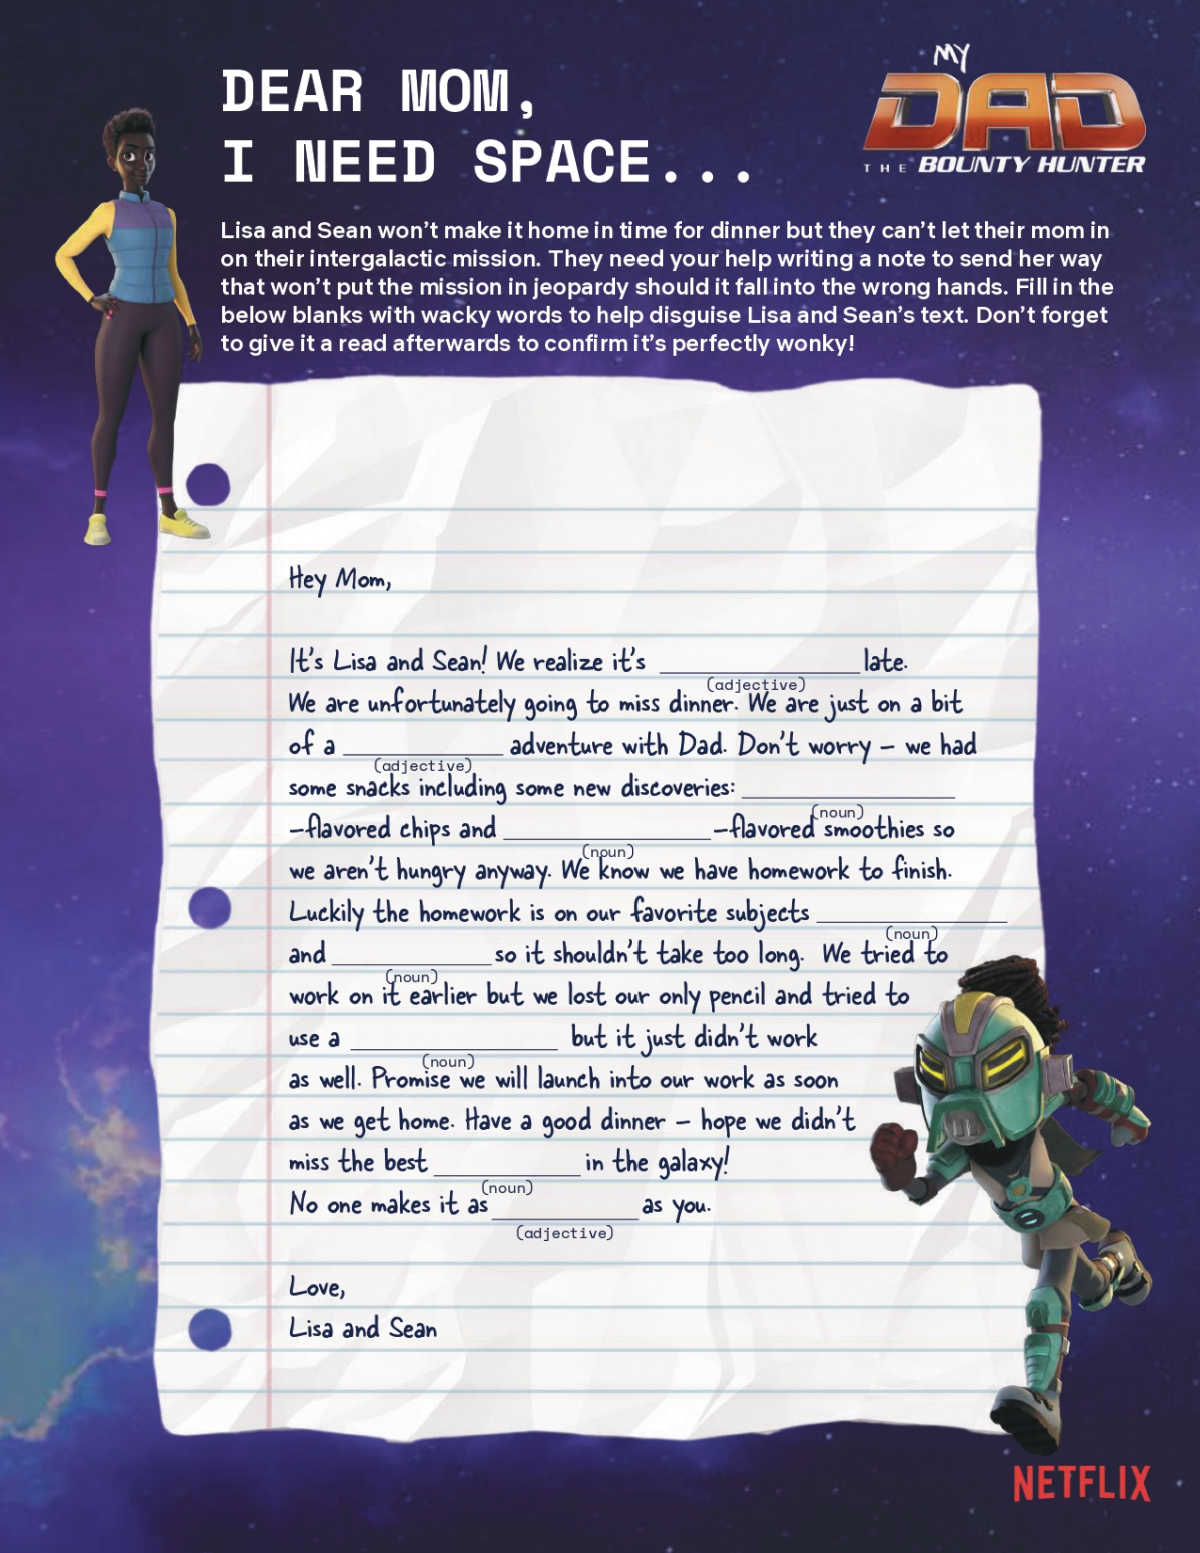 MY
DAD
THE BOUNTY HUNTER
DEAR MOM,
I NEED SPACE...
Lisa and Sean won't make it home in time for dinner but they can't let their mom in
on their intergalactic mission. They need your help writing a note to send her way
that won't put the mission in jeopardy should it fall into the wrong hands. Fill in the
below blanks with wacky words to help disguise Lisa and Sean's text. Don't forget
to give it a read afterwards to confirm it's perfectly wonky!
Hey Mom,
It's Lisa and Sean! We realize it's ____________ late.
(adjective)
We are unfortunately going to miss dinner. We are just on a bit
of a ____________ adventure with Dad. Don't worry – we had
(adjective)
some snacks including some new discoveries: ____________
(noun)
–flavored chips and ____________–flavored smoothies so
(noun)
we aren't hungry anyway. We know we have homework to finish.
Luckily the homework is on our favorite subjects ____________
(noun)
and ____________ so it shouldn't take too long. We tried to
(noun)
work on it earlier but we lost our only pencil and tried to
use a ____________ but it just didn't work
(noun)
as well. Promise we will launch into our work as soon
as we get home. Have a good dinner – hope we didn't
miss the best ____________ in the galaxy!
(noun)
No one makes it as ____________ as you.
(adjective)
Love,
Lisa and Sean
NETFLIX